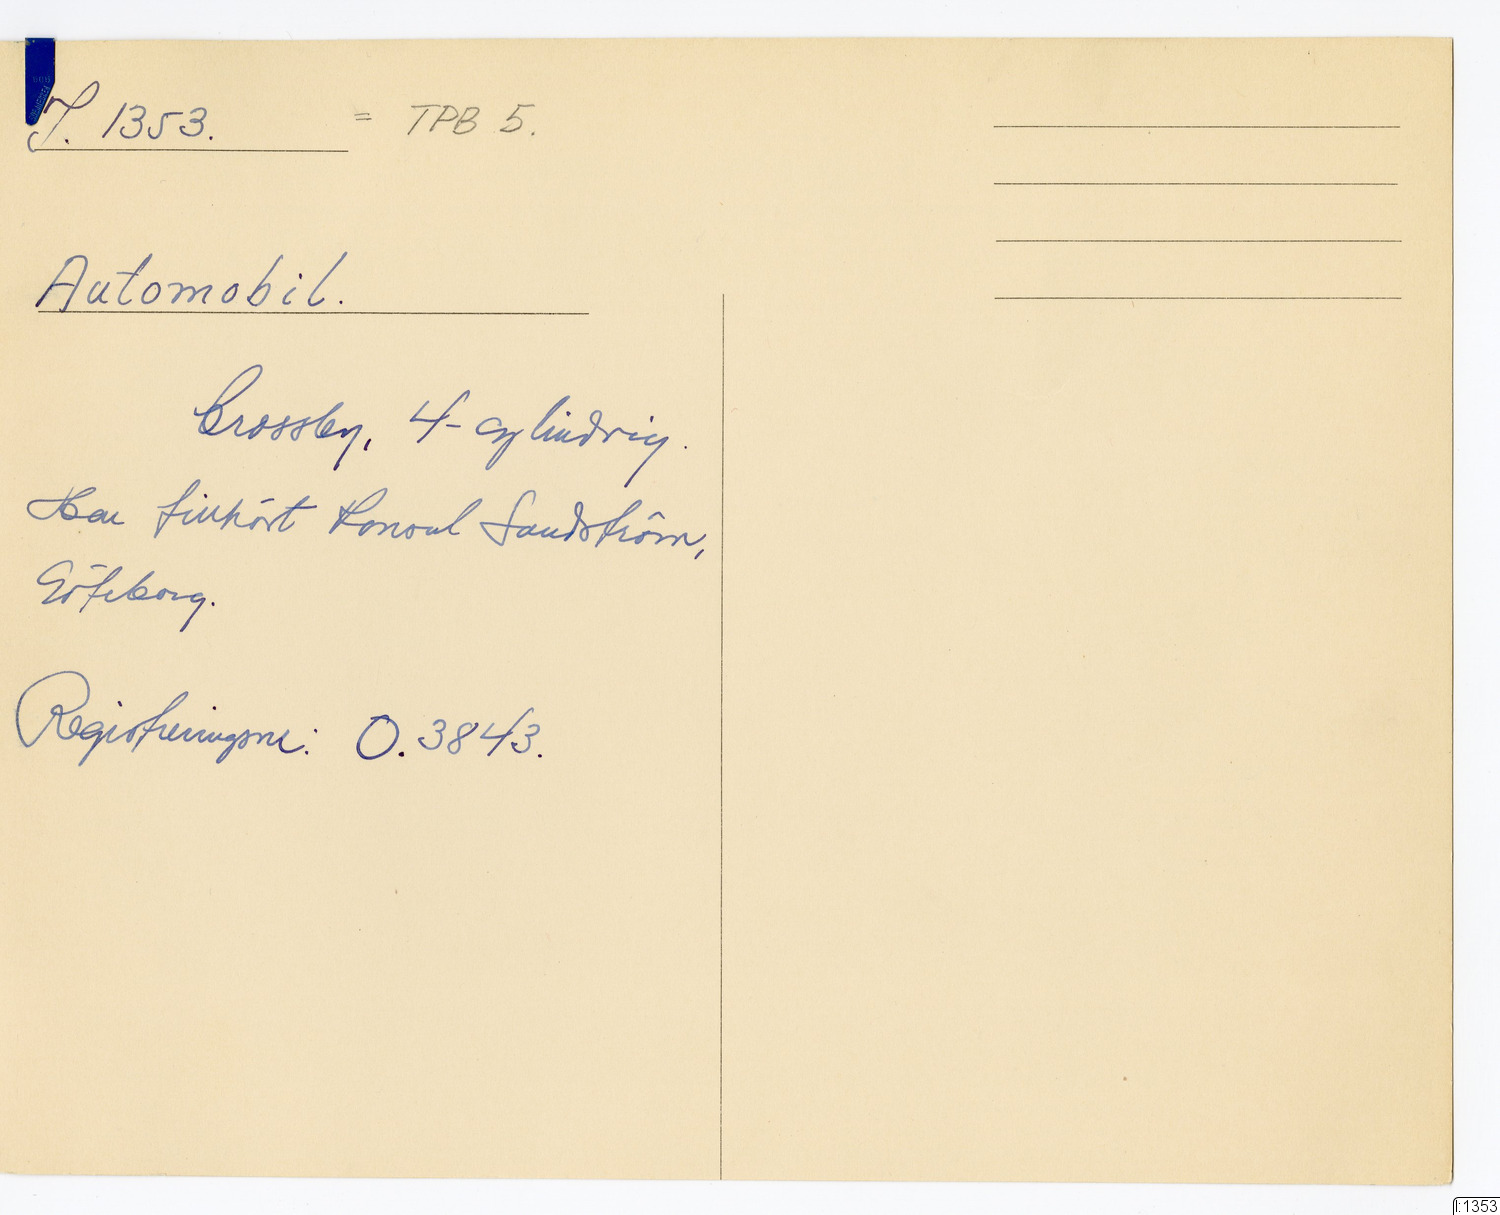 I. 1353. = TPB 5.
Automobil.
Crossley, 4-cylindrig.
Har tillhört Konsul Sandström,
Göteborg.
Registreringsnr: O. 3843.
I:1353